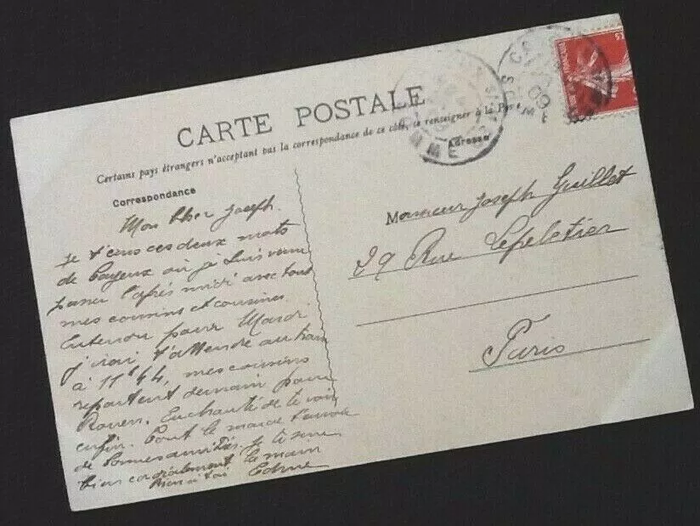 CARTE POSTALE
Certains pays étrangers n'acceptant pas la correspondance de ce côté, se renseigner à la Poste
Correspondance
Adresse
Mon cher Joseph.
Je t'envoie ces deux mots
de Cayeux où je suis venu
passer l'après midi avec tout
mes cousins et cousines
Entendu pour Mardi
J'irai t'attendre au train
à 11h44, mes cousins
repartent demain pour
Rouen. Enchanté de te voir
enfin. Tout le monde t'envoie
de bonnes amitiés. Je te serre
bien cordialement la main
Monsieur Joseph Guillot
29 Rue Lepeletier
Paris